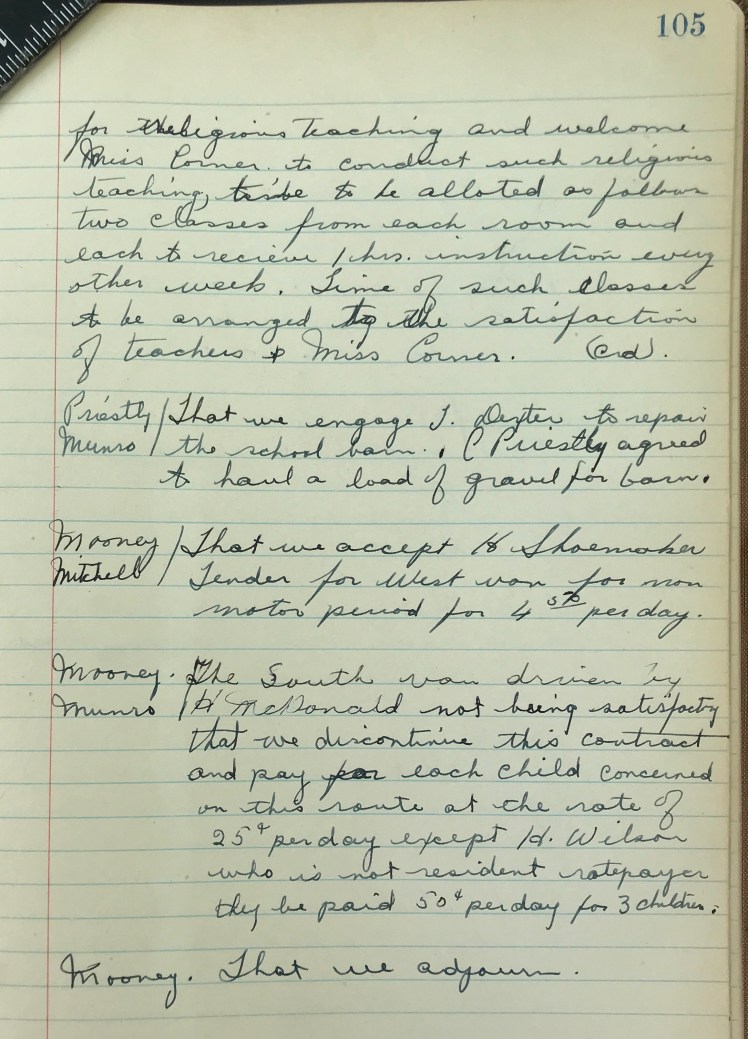 105
for religious teaching and welcome
Miss Corner. to conduct such religious
teaching, to be alloted as follows
two classes from each room and
each to recieve 1 hrs. instruction every
other week. Time of such classes
to be arranged to the satisfaction
of teachers & Miss Corner. (Crd).
Priestly / That we engage J. Dexter to repair
Munro / the school barn. C Priestly agreed
to haul a load of gravel for barn.
Mooney / That we accept H Shoemaker
Mitchell / Tender for West van for non
motor period for 4 50 per day.
Mooney. The South van driven by
Munro / H McDonald not being satisfactry
that we discontinue this contract
and pay for each child concerned
on this route at the rate of
25¢ per day except H. Wilson
who is not resident ratepayer
they be paid 50¢ per day for 3 children.
Mooney. That we adjourn.